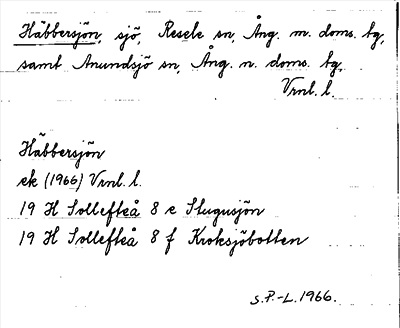 Häbbersjön, sjö, Resele sn, Ång. m. doms. tg,
samt Anundsjö sn, Ång. n. doms. tg,
Vrnl. l.
Häbbersjön
ek (1966) Vrnl. l.
19 H Sollefteå 8 e Stugusjön
19 H Sollefteå 8 f Kroksjöbotten
S.P.-L. 1966.